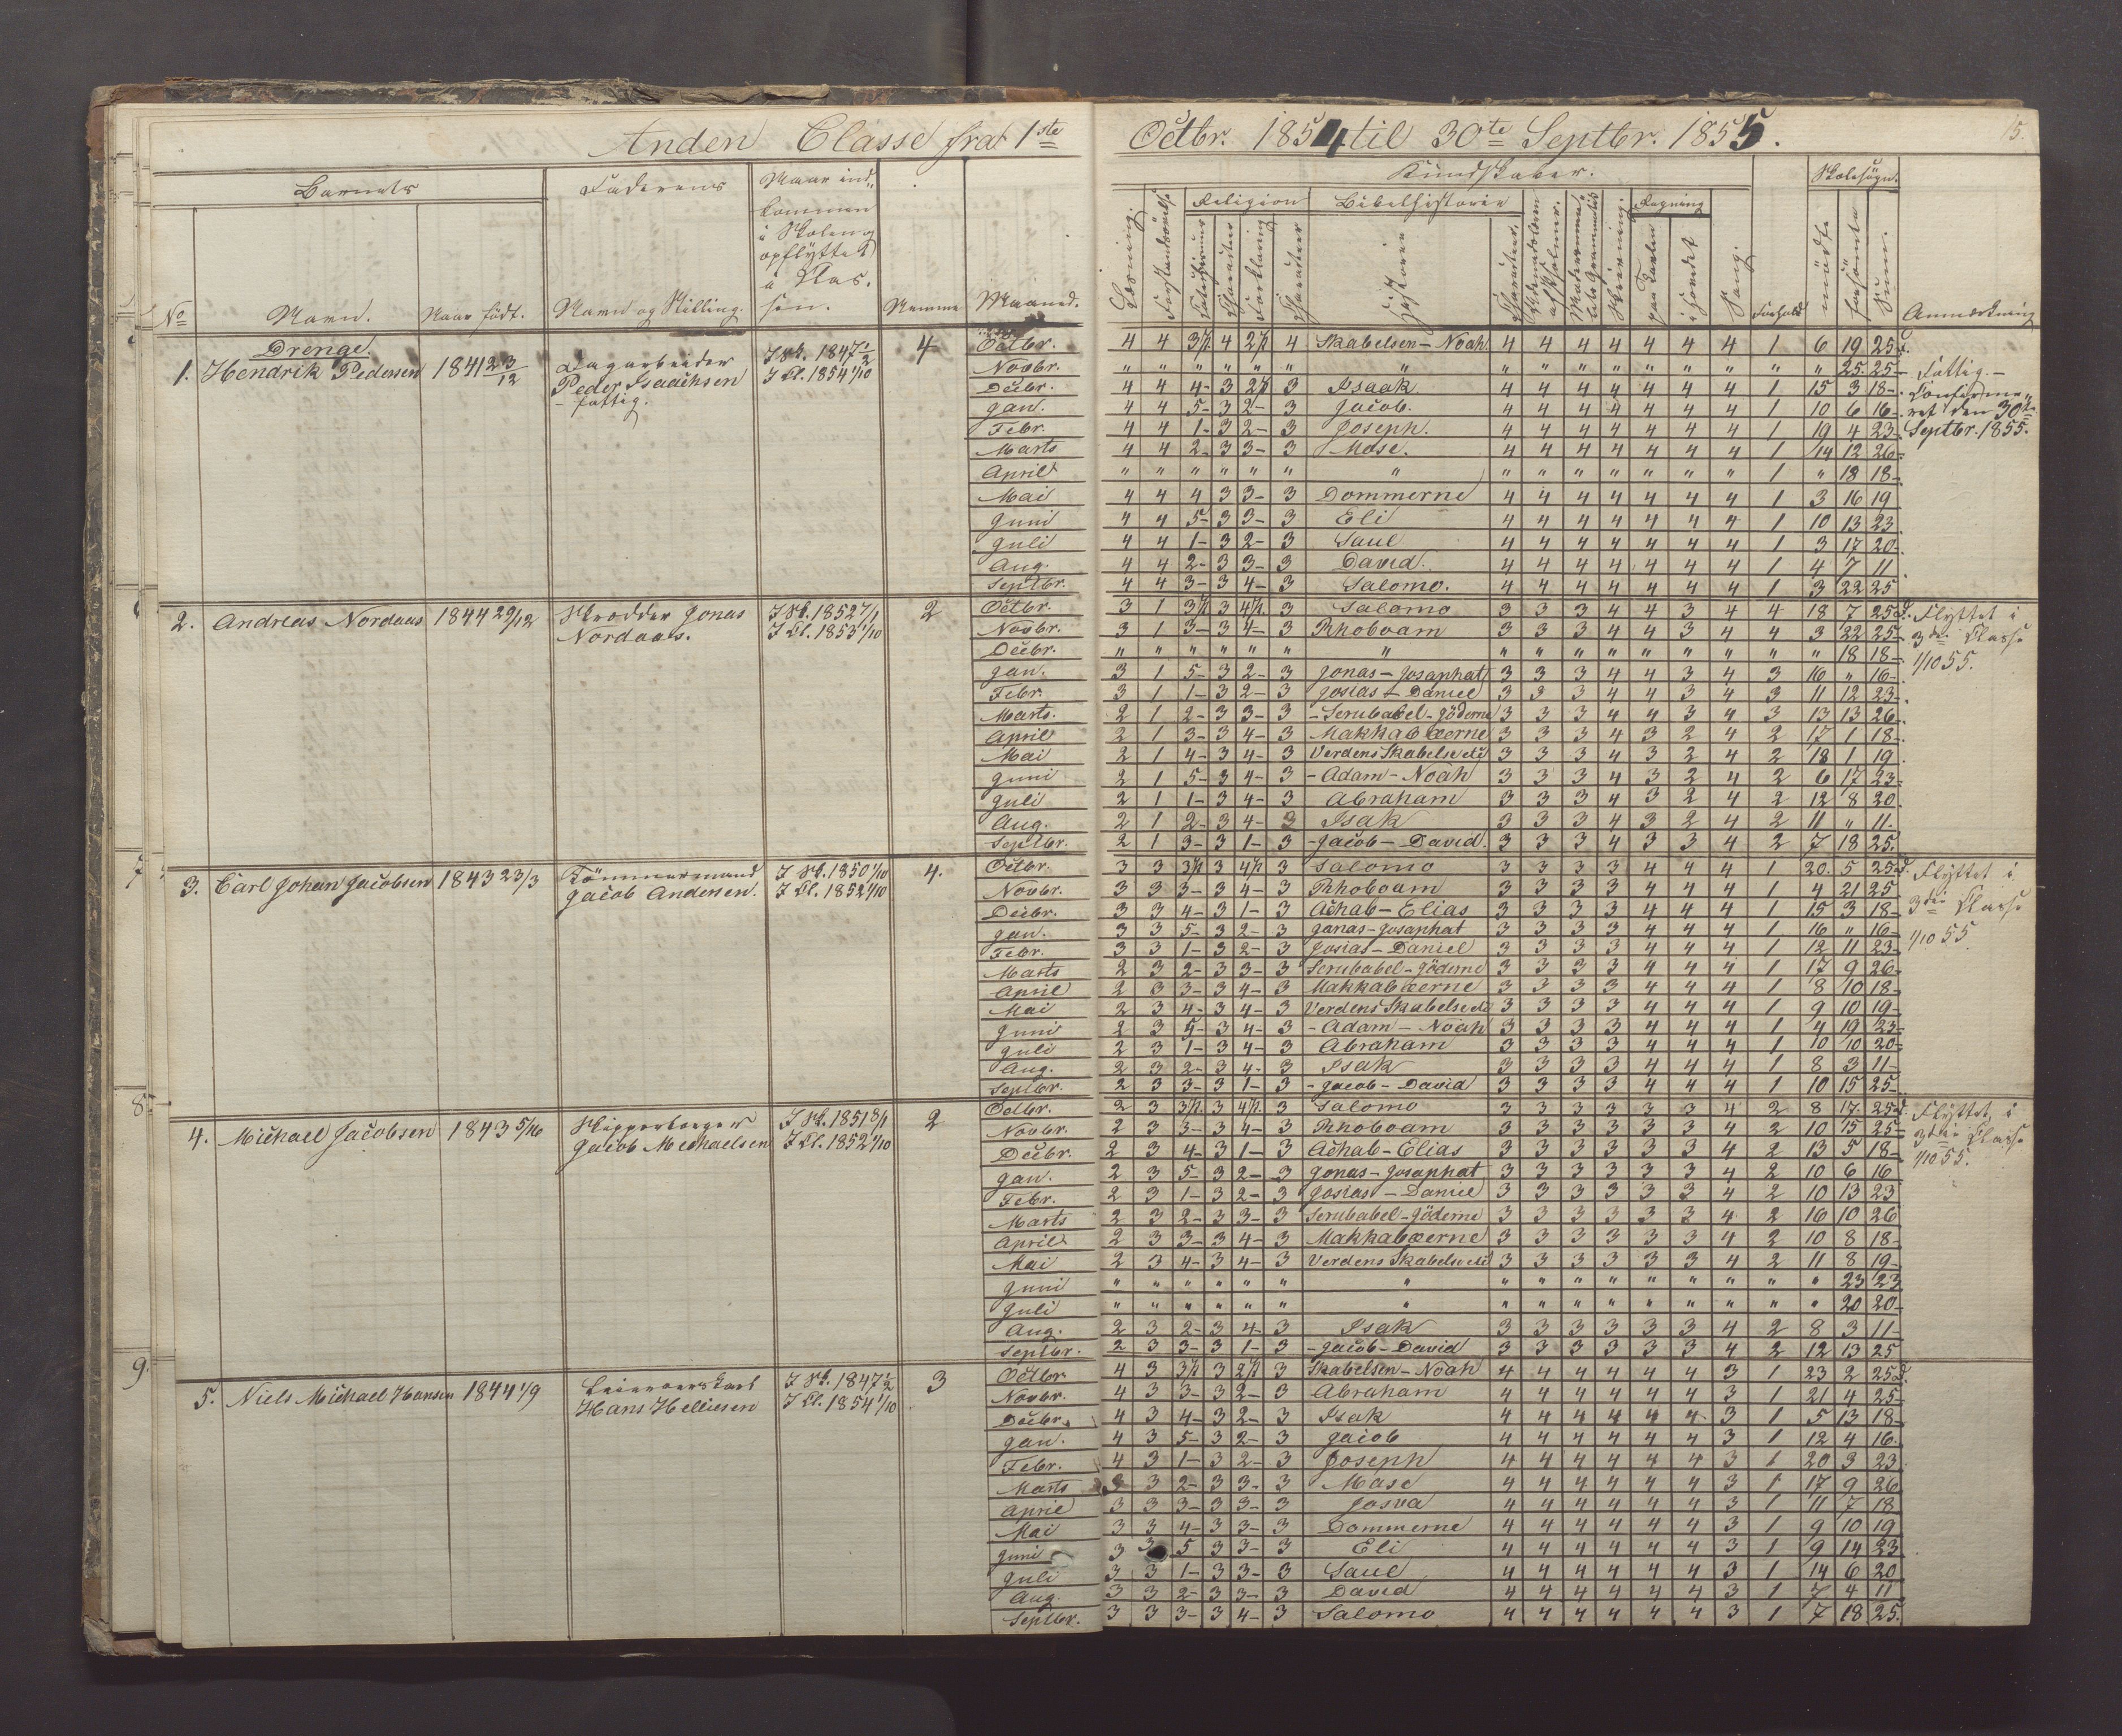 Anden Classe fra 1ste Octbr. 1854 til 30te Septbr. 1855. 15.
Barnets Faderens Naar ind- Kundskaber. Skolesøgn.
kommen Religion Bibelhistorie Regning
i Skolen og
opflyttet
i Klas-
sen.
No Navn. Naar født. Navn og Stilling. Nummer Maaned. Læsning. Forklaring Historien Sang. Forhold mødte forsømte Sum. Anmærkning
Drenge
1. Hendrik Pedersen 1841 23/12 Dagarbeider Peder Isachsen - fattig. I Sk. 1847 1/2 I Cl. 1854 1/10 4
Octbr. 4 4 3 1/2 4 2 1/2 4 Skabelsen - Noah 4 4 4 4 4 4 4 1 6 19 25 d.
Novbr. " " " " " " " " " " " " " " " " 25 25 - Fattig. -
Decbr. 4 4 4- 3 2 1/2 3 Isaak 4 4 4 4 4 4 4 1 15 3 18 - Confirme-
Jan. 4 4 5- 3 2- 3 Jacob. 4 4 4 4 4 4 4 1 10 6 16 - ret den 30te
Febr. 4 4 1- 3 2- 3 Joseph. 4 4 4 4 4 4 4 1 19 4 23 - Septbr. 1855.
Marts 4 4 2- 3 3- 3 Mose. 4 4 4 4 4 4 4 1 14 12 26 -
April " " " " " " " " " " " " " " 1 " 18 18 -
Mai 4 4 4 3 3- 3 Dommerne 4 4 4 4 4 4 4 1 3 16 19
Juni 4 4 5- 3 3- 3 Eli 4 4 4 4 4 4 4 1 10 13 23
Juli 4 4 1- 3 2- 3 Saul 4 4 4 4 4 4 4 1 3 17 20 -
Aug. 4 4 2- 3 3- 3 David. 4 4 4 4 4 4 4 1 4 7 11
Septbr. 4 4 3- 3 4- 3 Salomo. 4 4 4 4 4 4 4 1 3 22 25
2. Andreas Nordaas 1844 29/12 Skrædder Jonas Nordaas. I Sk. 1852 7/1 I Cl. 1853 1/10 2
Octbr. 3 1 3 1/2 3 4 1/2 3 Salomo 3 3 3 4 4 3 4 4 18 7 25 d. Flyttet i
Novbr. 3 1 3- 3 4- 3 Rhoboam 3 3 3 4 4 3 4 4 3 22 25 - 3die Classe
Decbr. " " " " " " " " " " " " " " " " 18 18 - 1/10 55.
Jan. 3 1 5- 3 2- 3 Jonas - Josaphat 3 3 3 4 4 3 4 3 16 " 16 -
Febr. 3 1 1- 3 2- 3 Josias - Daniel 3 3 3 4 4 3 4 3 11 12 23 -
Marts. 2 1 2- 3 3- 3 - Serubabel - Jöderne 3 3 3 4 4 3 4 3 13 13 26 -
April 2 1 3- 3 4- 3 Makkabæerne 3 3 3 4 3 2 4 2 17 1 18 -
Mai 2 1 4- 3 4- 3 Verdens Skabelse etc 3 3 3 4 3 2 4 2 18 1 19
Juni 2 1 5- 3 4- 3 - Adam - Noah 3 3 3 4 3 2 4 2 6 17 23 -
Juli 2 1 1- 3 4- 3 Abraham 3 3 3 4 3 2 4 2 12 8 20
Aug. 2 1 2- 3 4- 3 Isak 3 3 3 4 3 2 4 2 11 " 11 -
Septbr. 2 1 3- 3 1- 3 - Jacob - David. 3 3 3 4 3 3 4 2 7 18 25.
3. Carl Johan Jacobsen 1843 23/3 Tömmermand Jacob Andersen. I Sk. 1850 1/10 I Cl. 1852 1/10 4.
Octbr. 3 3 3 1/2 3 4 1/2 3 Salomo 3 3 3 3 4 4 4 1 20. 5 25 d. Flyttet i
Novbr. 3 3 3- 3 4- 3 Rhoboam 3 3 3 3 4 4 4 1 4 21 25
Decbr. 3 3 4- 3 1- 3 Achab - Elias 3 3 3 3 4 4 4 1 15 3 18 - 3die Classe
Jan. 3 3 5- 3 2- 3 Jonas - Josaphat 3 3 3 3 4 4 4 1 16 " 16 -
Febr. 3 3 1- 3 2- 3 Josias - Daniel 3 3 3 3 4 4 4 1 12 11 23 - 1/10 55
Marts 2 3 2- 3 3- 3 Serubabel - Jöderne 3 3 3 3 4 4 4 1 17 9 26 -
April 2 3 3- 3 4- 3 Makkabæerne 3 3 3 3 4 4 4 1 8 10 18 -
Mai 2 3 4- 3 4- 3 Verdens Skabelse etc 3 3 3 3 4 4 4 1 9 10 19 -
Juni 2 3 5- 3 4- 3 - Adam - Noah 3 3 3 3 4 4 4 1 4 19 23 -
Juli 2 3 1- 3 4- 3 Abraham 3 3 3 3 4 4 4 1 10 10 20 -
Aug. 2 3 2- 3 4- 3 Isak 3 3 3 3 4 4 4 1 8 3 11 -
Septbr. 2 3 3- 3 1- 3 - Jacob - David 3 3 3 3 4 4 4 1 10 15 25 -
4. Michael Jacobsen 1843 5/16 Skipperborger Jacob Mechaelsen I Sk. 1851 8/1 I Cl. 1852 1/10 2
Octbr. 2 3 3 1/2 3 4 1/2 3 Salomo 3 3 3 3 3 3 4 2 8 17 25 d. Flyttet i
Novbr. 2 3 3- 3 4- 3 Rhoboam 3 3 3 3 3 3 4 2 10 15 25 - 3die Classe
Decbr. 2 3 4- 3 1- 3 Achab - Elias 3 3 3 3 3 3 4 2 13 5 18 - 1/10 55.
Jan. 2 3 5- 3 2- 3 Jonas - Josaphat 3 3 3 3 3 3 4 2 10 6 16
Febr. 2 3 1- 3 2- 3 Josias - Daniel 3 3 3 3 3 3 4 2 10 13 23
Marts 2 3 2- 3 3- 3 Serubabel - Jöderne 3 3 3 3 3 3 4 2 16 10 26
April 2 3 3- 3 4- 3 Makkabæerne 3 3 3 3 3 3 4 2 10 8 18 -
Mai 2 3 4- 3 4- 3 Verdens Skabelse etc 3 3 3 3 3 3 4 2 11 8 19 -
Juni " " " " " " " " " " " " " " " " 23 23
Juli " " " " " " " " " " " " " " " " 20 20 -
Aug. 2 3 2- 3 4- 3 Isak 3 3 3 3 3 3 4 2 8 3 11 -
Septbr. 2 3 3- 3 1- 3 - Jacob - David 3 3 3 3 3 3 4 2 12 13 25
5. Niels Michael Hansen 1844 1/9 Hans Helliesen I Sk. 1847 1/2 I Cl. 1854 1/10 3
Octbr 4 3 3 1/2 3 2 1/2 3 Skabelsen - Noah 4 4 4 4 4 4 3 1 23 2 25 d.
Novbr. 4 3 3- 3 2- 3 Abraham 4 4 4 4 4 4 3 1 21 4 25 -
Decbr. 4 3 4- 3 2- 3 Isak 4 4 4 4 4 4 3 1 5 13 18 -
Jan. 4 3 5- 3 2- 3 Jacob 4 4 4 4 4 4 3 1 12 4 16.
Febr. 4 3 1- 3 2- 3 Joseph 4 4 4 4 4 4 3 1 20 3 23
Marts 3 3 2- 3 3- 3 Mose 4 4 4 4 4 4 3 1 17 9 26
April 3 3 3- 3 3- 3 Josva 4 4 4 4 4 4 3 1 11 7 18
Mai 3 3 4- 3 3- 3 Dommerne 4 4 4 4 4 4 3 1 9 10 19
Juni 3 3 5 3 3- 3 Eli 4 4 4 4 4 4 3 1 9 14 23
Juli 3 3 1- 3 3- 3 Saul 4 4 4 4 4 4 3 1 14 6 20
Aug. 3 3 2- 3 3- 3 David 4 4 4 4 4 4 3 1 7 4 11
Septbr. 3 3 3- 3 4- 3 Salomo 4 4 4 4 4 4 3 1 7 18 25.